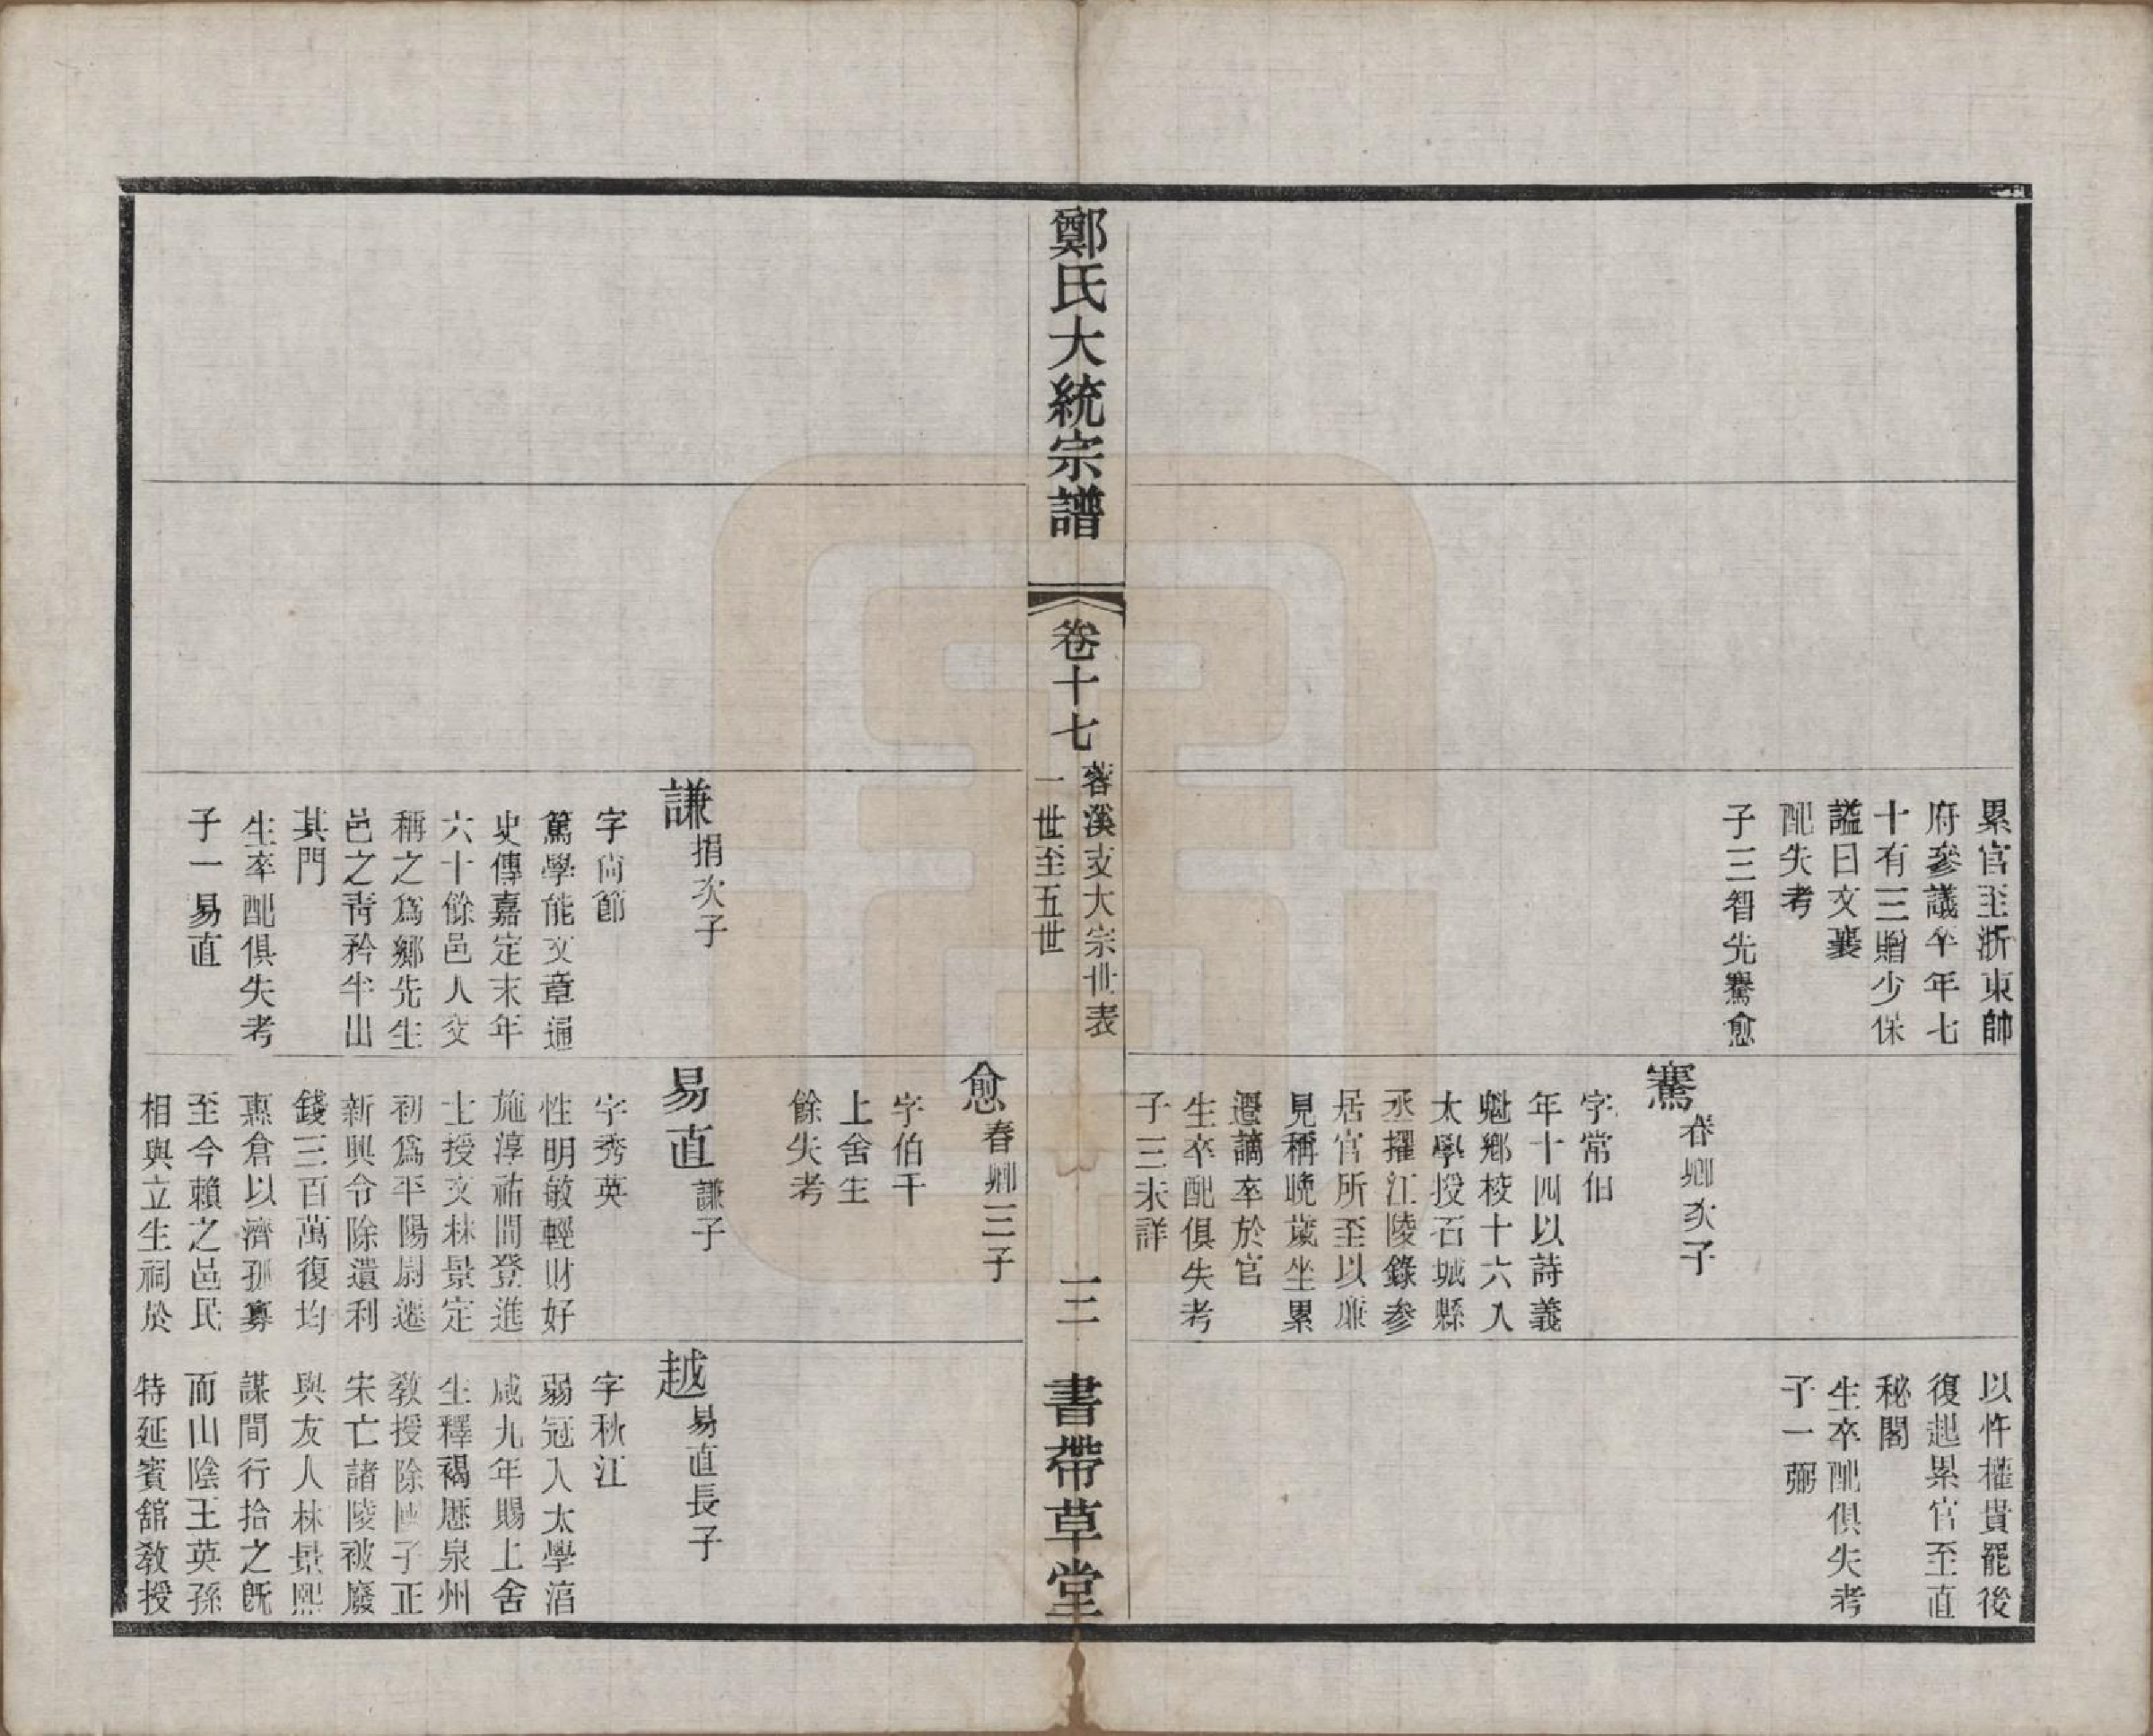 累官至浙東帥
府參議卒年七
十有三贈少保
謚曰文襄
配失考
子三智先騫愈
騫春卿次子
字常伯
年十四以詩義
魁鄉校十六入
太學授石城縣
丞擢江陵錄參
居官所至以廉
見稱晚歲坐累
遷謫卒於官
生卒配俱失考
子三未詳
以忤權貴罷後
復起累官至直
秘閣
生卒配俱失考
子一彌
鄭氏大統宗譜
卷十七
蓉溪支大宗世表
一世至五世
三
書帶草堂
謙捐次子
字尚節
篤學能文章通
史傳嘉定末年
六十餘邑人交
稱之爲鄉先生
邑之靑矜半出
其門
生卒配俱失考
子一易直
愈春卿三子
字伯干
上舍生
餘失考
易直謙子
字秀英
性明敏輕財好
施淳祐間登進
士授文林景定
初爲平陽尉遷
新興令除遺利
錢三百萬復均
惠倉以濟孤寡
至今賴之邑民
相與立生祠於
越易直長子
字秋江
弱冠入太學
咸九年賜上舍
生釋褐歷泉州
敎授除國子正
宋亡諸陵被廢
與友人林景熙
謀間行拾之旣
而山陰王英孫
特延賓舘敎授